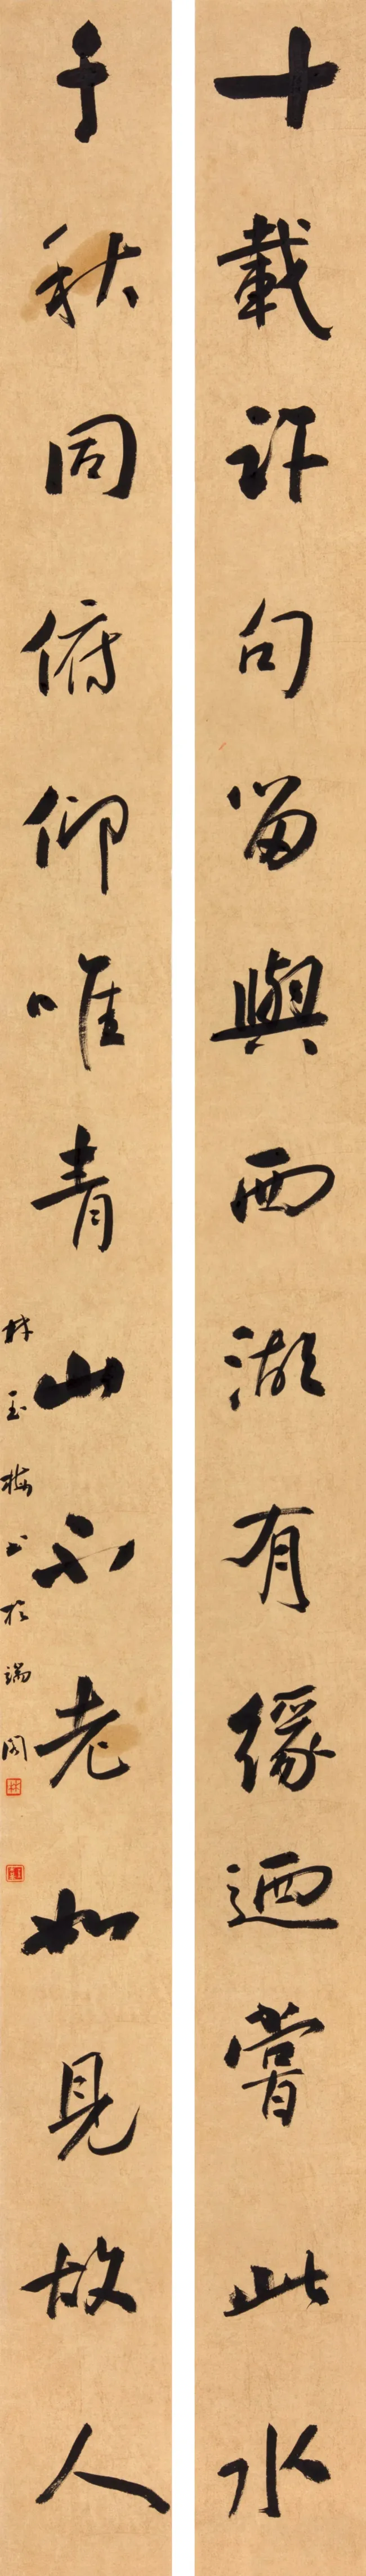 十載許句留與西湖有緣迺嘗此水
千秋同俯仰唯青山不老如見故人
林玉梅书於端阁